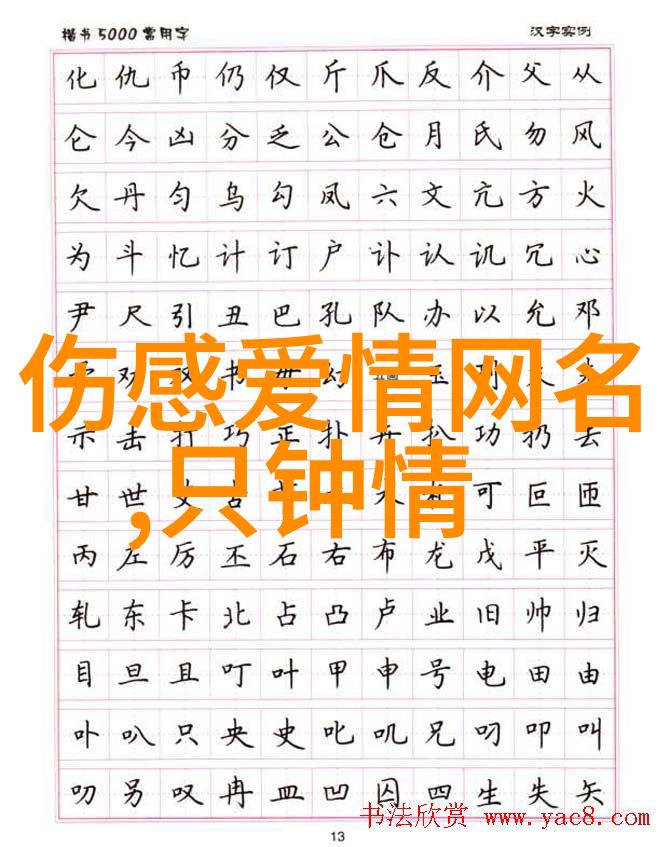 楷书5000常用字 汉字实例
化 仇 币 仍 仅 斤 爪 反 介 父 从
仑 今 凶 分 乏 公 仓 月 氏 勿 风
欠 丹 匀 乌 勾 凤 六 文 亢 方 火
为 斗 忆 计 订 户 讣 认 讥 冗 心
尹 尺 引 丑 巴 孔 队 办 以 允 邓
伤感爱情网名
劝 双 书 毋 幻
示 击 打 巧 正 扑 卉 扒 功 扔 去
,只钟情
甘 世 古 可 叵 匝
丙 左 厉 丕 石 右 布 龙 戊 平 灭
轧 东 卡 北 占 凸 卢 业 旧 帅 归
目 旦 且 叮 叶 甲 申 号 电 田 由
卟 叭 只 央 史 叱 叽 兄 叼 叩 叫
叨 另 叹 冉 皿 凹 囚 四 生 失 矢
书法欣赏 www.yac8.com
13